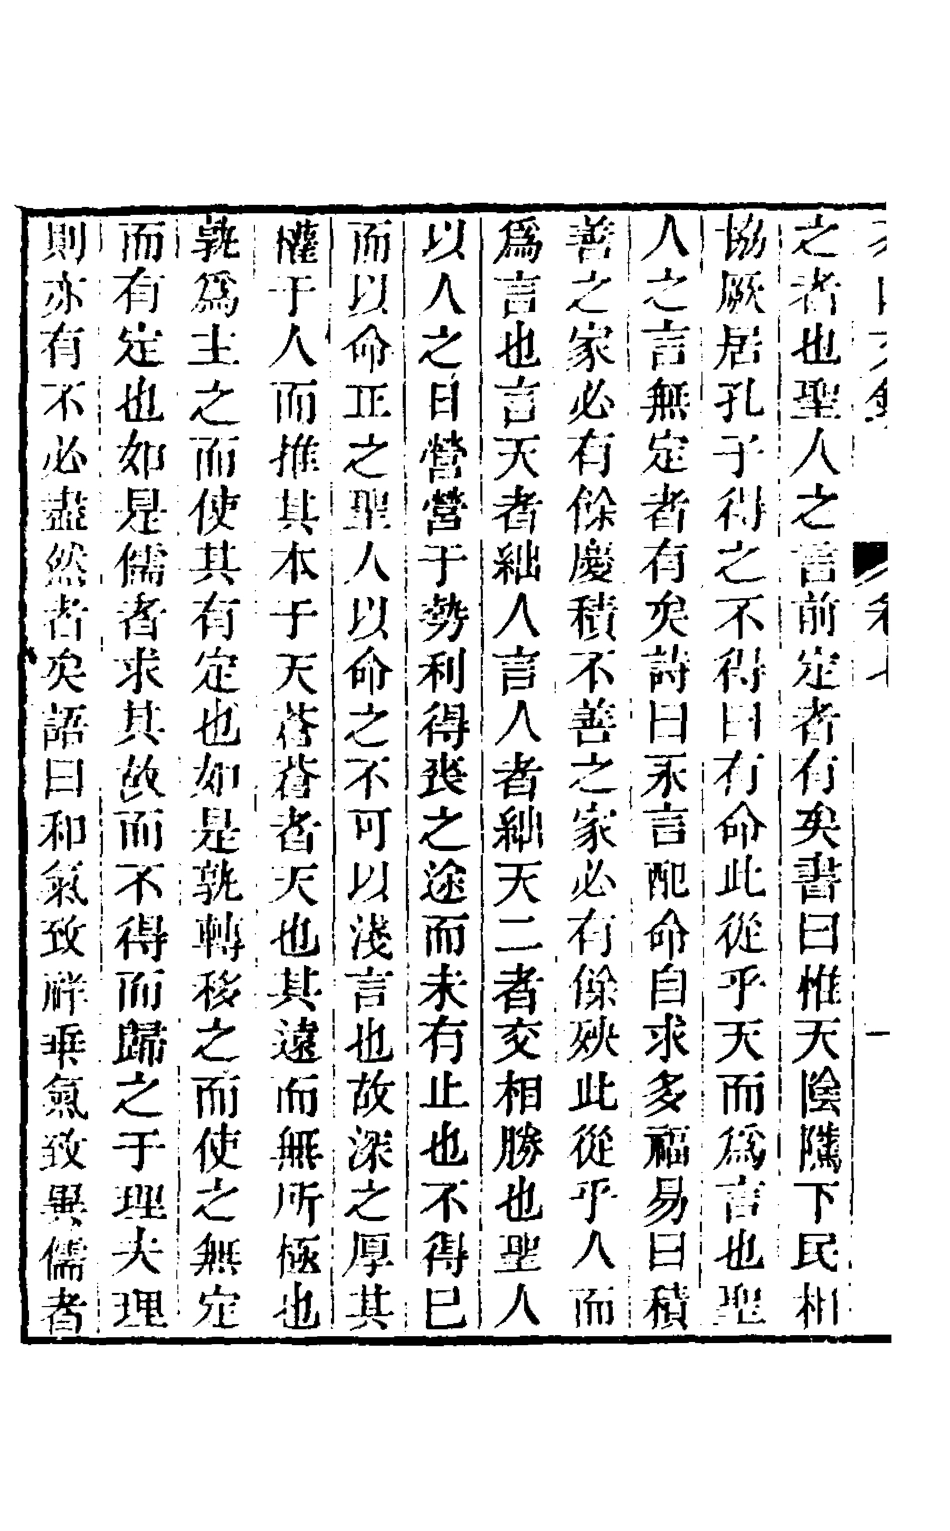 之者也聖人之言前定者有矣書曰惟天陰隲下民相
協厥居孔子得之不得曰有命此從乎天而爲言也聖
人之言無定者有矣詩曰永言配命自求多福易曰積
善之家必有餘慶積不善之家必有餘殃此從乎人而
爲言也言天者絀人言人者絀天二者交相勝也聖人
以人之日營營于勢利得喪之途而未有止也不得已
而以命正之聖人以命之不可以淺言也故深之厚其
權于人而推其本于天蒼蒼者天也其遠而無所極也
孰爲主之而使其有定也如是孰轉移之而使之無定
而有定也如是儒者求其故而不得而歸之于理夫理
則亦有不必盡然者矣語曰和氣致祥乖氣致異儒者